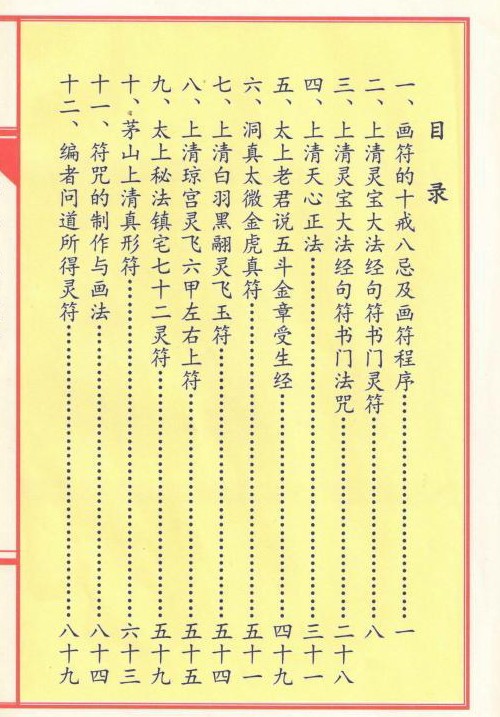 目录
一、画符的十戒八忌及画符程序……一
二、上清灵宝大法经句符书门灵符……八
三、上清灵宝大法经句符书门法咒……二十八
四、上清天心正法……三十一
五、太上老君说五斗金章受生经……四十九
六、洞真太微金虎真符……五十一
七、上清白羽黑翮灵飞玉符……五十四
八、上清琼宫灵飞六甲左右上符……五十五
九、太上秘法镇宅七十二灵符……五十九
十、茅山上清真形符……六十三
十一、符咒的制作与画法……八十四
十二、编者问道所得灵符……八十九